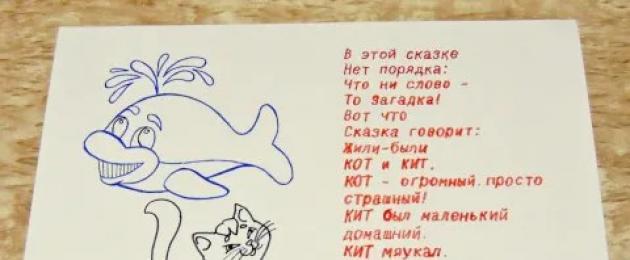 В этой сказке
Нет порядка:
Что ни слово -
То загадка!
Вот что
Сказка говорит:
Жили-были
КОТ и КИТ.
КОТ - огромный.просто
страшный!
КИТ был маленький
домашний.
КИТ мяукал.